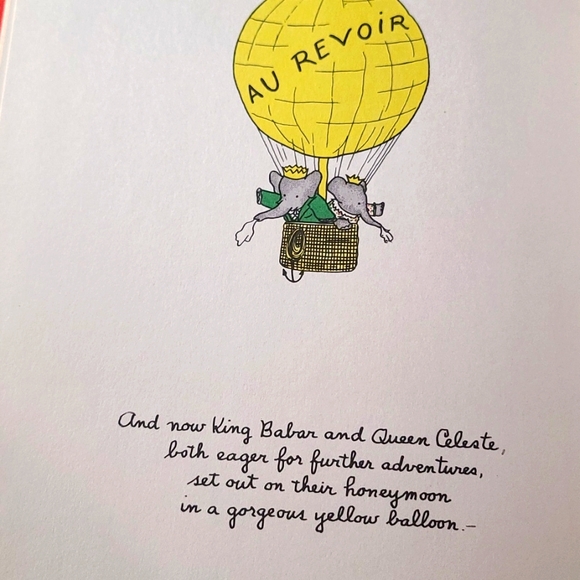 AU REVOIR
And now King Babar and Queen Celeste,
both eager for further adventures,
set out on their honeymoon
in a gorgeous yellow balloon.—